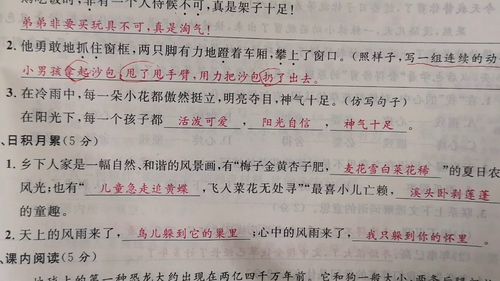 则吃饭时,非有一个人侍候不可,真是架子十足!
弟弟非要买玩具不可,真是淘气!
2. 他勇敢地抓住窗框,两只脚有力地蹬着车厢,攀上了窗口。(照样子,写一组连续的动
小男孩拿起沙包,甩了甩手臂,用力把沙包扔了出去。
3. 在冷雨中,每一朵小花都傲然挺立,明亮夺目,神气十足。(仿写句子)
在阳光下,每一个孩子都 活泼可爱 , 阳光自信 , 神气十足 。
、日积月累(5分)
1. 乡下人家是一幅自然、和谐的风景画,有“梅子金黄杏子肥, 麦花雪白菜花稀 ”的夏日农
风光;也有“ 儿童急走追黄蝶 ,飞入菜花无处寻”“最喜小儿亡赖, 溪头卧剥莲蓬
的童趣。
2. 天上的风雨来了, 鸟儿躲到它的巢里 ;心中的风雨来了, 我只躲到你的怀里 。
、课内阅读(5分)
地球上的第一种恐龙大约出现在两亿四千万年前。它和狗一般大小,两条后腿